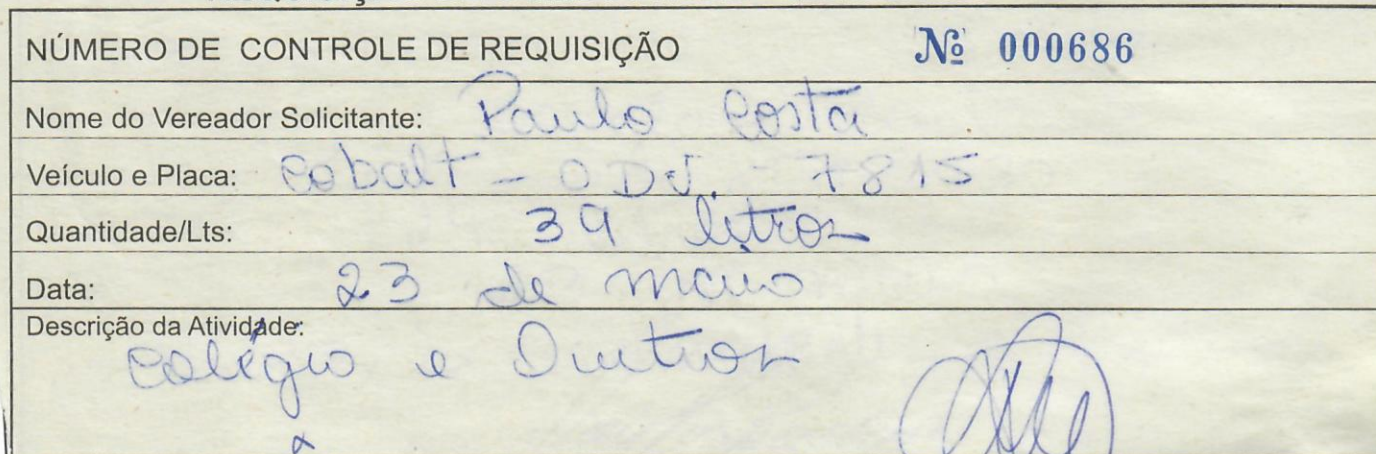 NÚMERO DE CONTROLE DE REQUISIÇÃO Nº 000686
Nome do Vereador Solicitante: Paulo Costa
Veículo e Placa: Cobalt - ODJ. - 7815
Quantidade/Lts: 39 litros
Data: 23 de maio
Descrição da Atividade:
Colégio e Outros